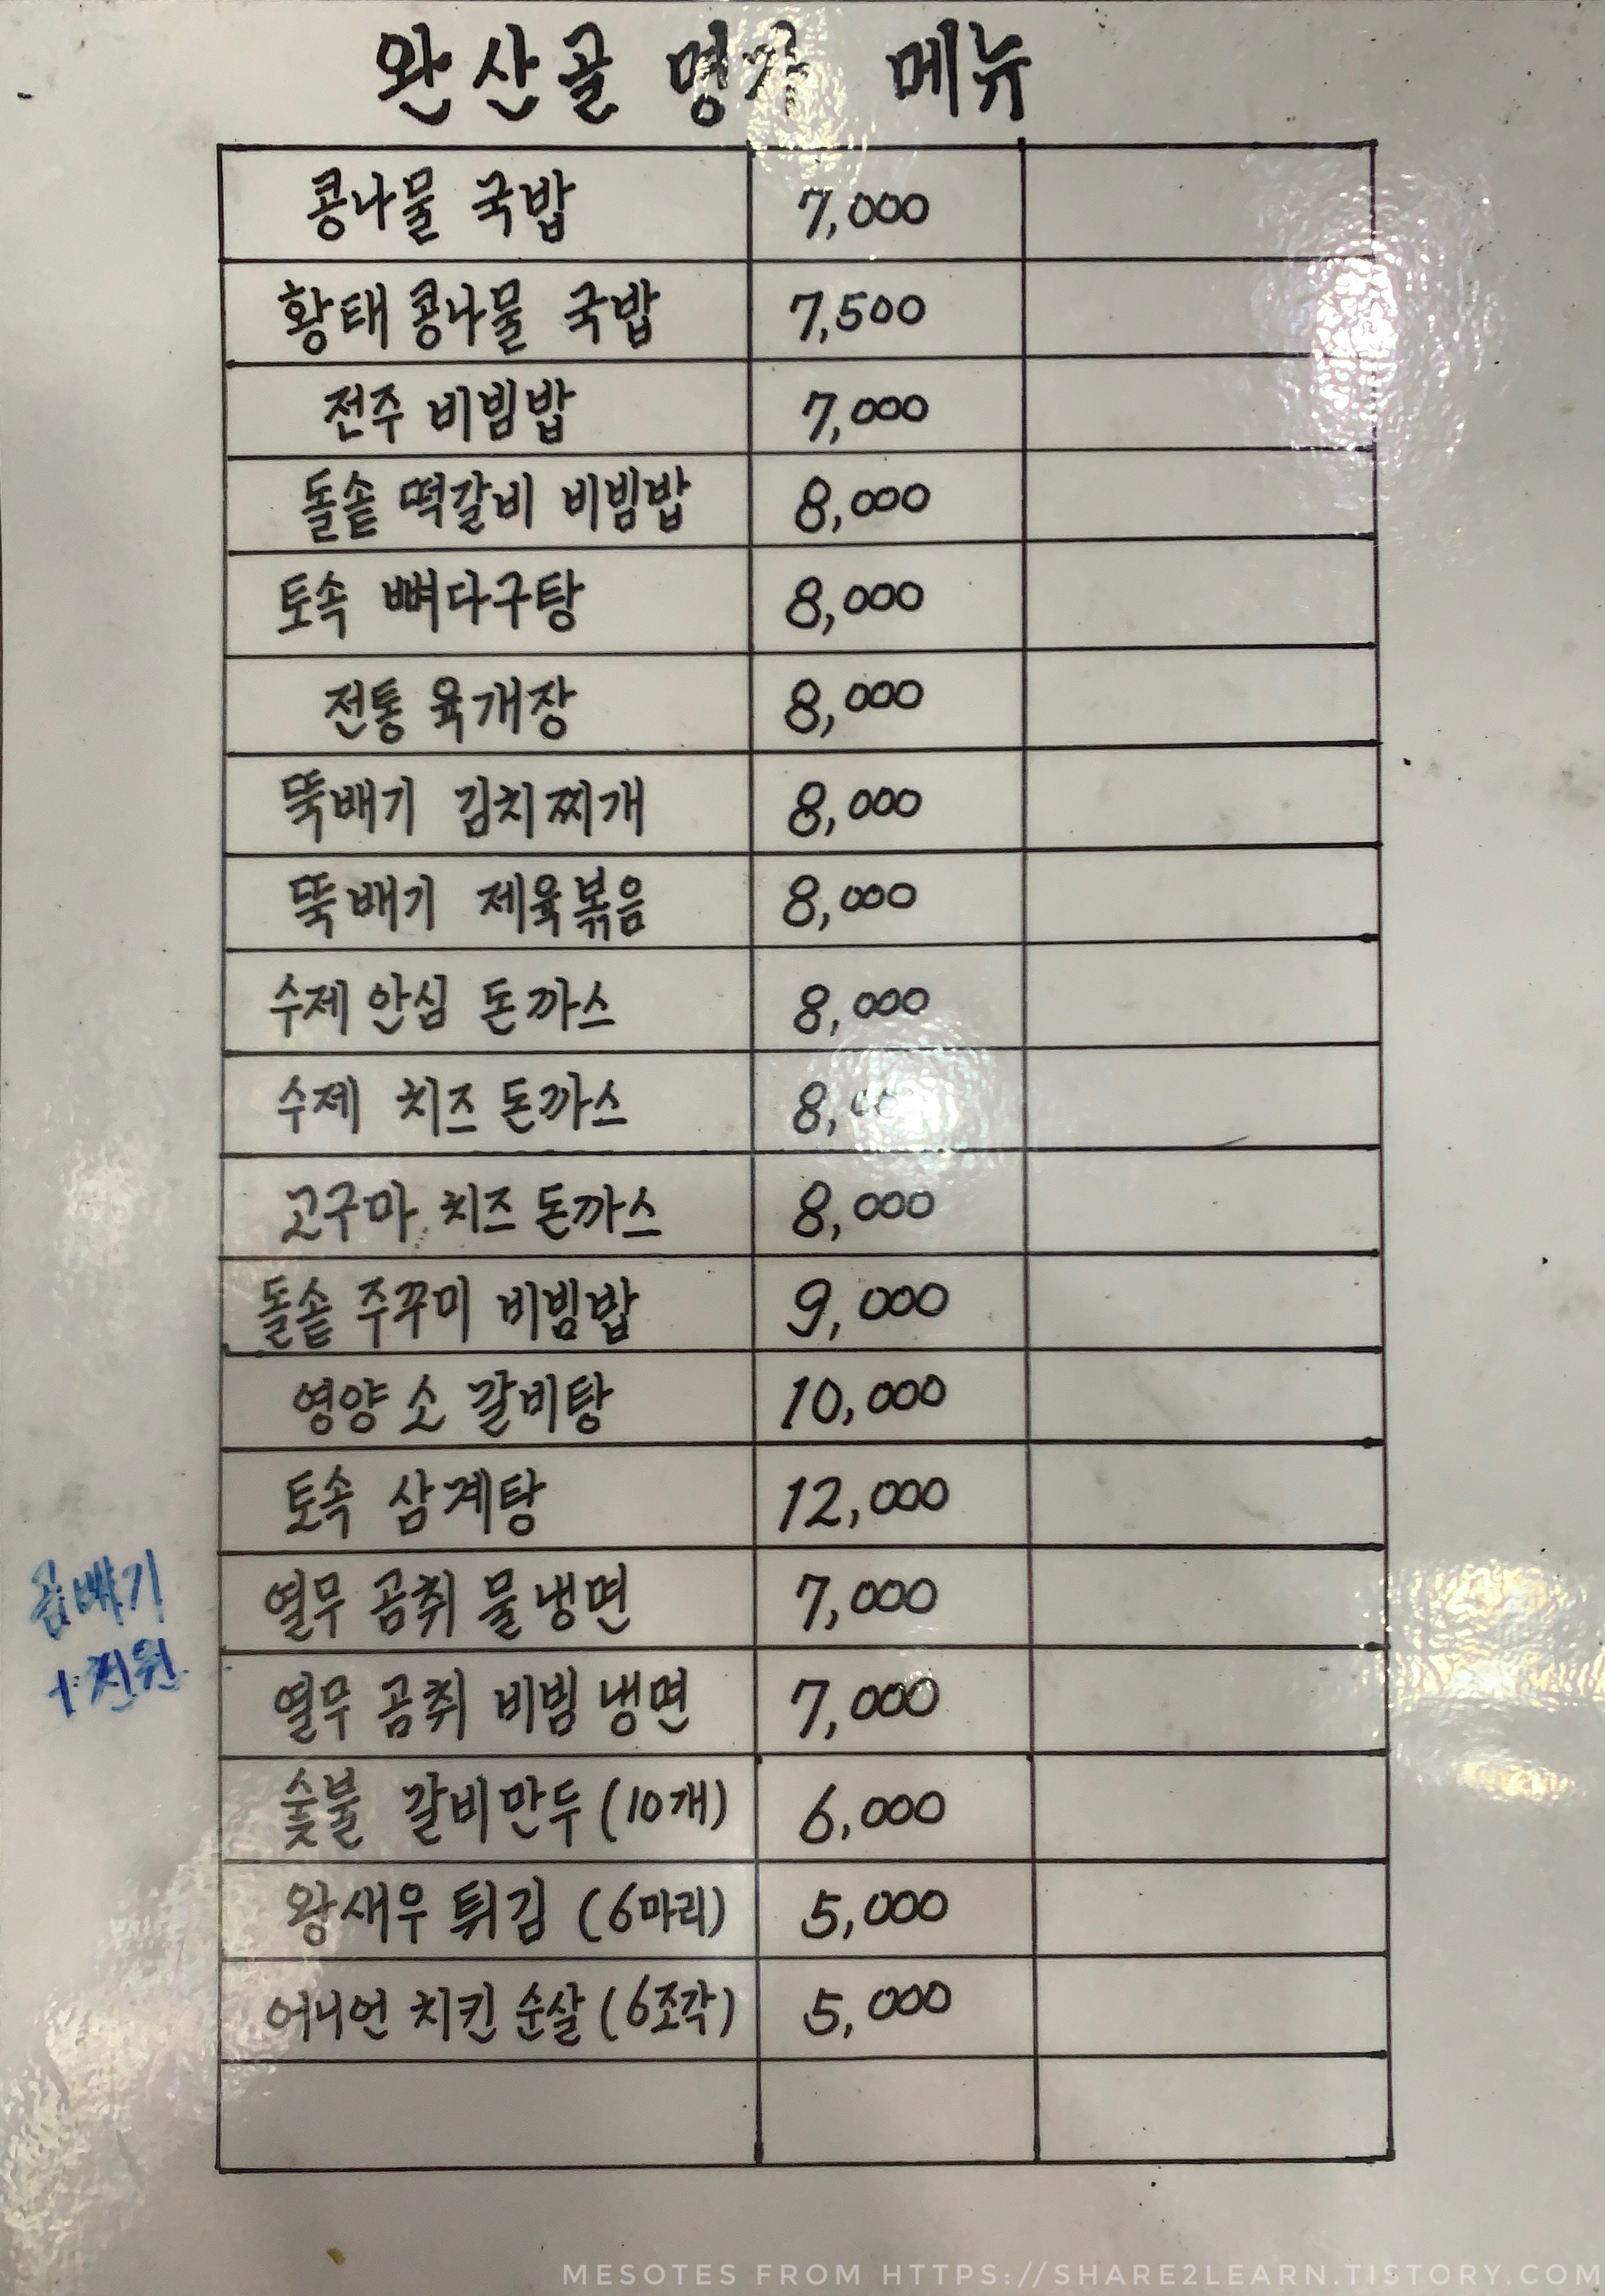 완산골 명가 메뉴
콩나물 국밥 7,000
황태 콩나물 국밥 7,500
전주 비빔밥 7,000
돌솥 떡갈비 비빔밥 8,000
토속 뼈다구탕 8,000
전통 육개장 8,000
뚝배기 김치찌개 8,000
뚝배기 제육볶음 8,000
수제 안심 돈까스 8,000
수제 치즈 돈까스
고구마 치즈 돈까스 8,000
돌솥 주꾸미 비빔밥 9,000
영양 소 갈비탕 10,000
토속 삼계탕 12,000
곱빼기
+천원
열무 곰취 물냉면 7,000
열무 곰취 비빔 냉면 7,000
숯불 갈비만두 (10개) 6,000
왕새우 튀김 (6마리) 5,000
어니언 치킨 순살 (6조각) 5,000
MESOTES FROM HTTPS://SHARE2LEARN.TISTORY.COM